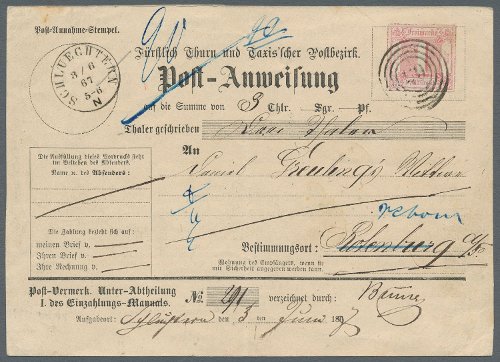 Post-Annahme-Stempel.
Fürstlich Thurn und Taxis'scher Postbezirk.
SCHLUECHTERN
3/6
67
5-6
N
Post-Anweisung
auf die Summe von 3 Thlr. Sgr. Pf.
Thaler geschrieben Thaler
An
Die Ausfüllung dieses Vordrucks steht
im Belieben des Absenders.
Name u. des Absenders:
Daniel
Die Zahlung bezieht sich auf:
meinen Brief v.
Ihren Brief v.
Ihre Rechnung v.
retour
Bestimmungsort: Rotenburg
Wohnung des Empfängers, wenn sie
mit Sicherheit angegeben werden kann.
Post-Vermerk. Unter-Abtheilung
I. des Einzahlungs-Manuals.
№ verzeichnet durch:
Aufgabeort: Schlüchtern den 3 Juni 1867